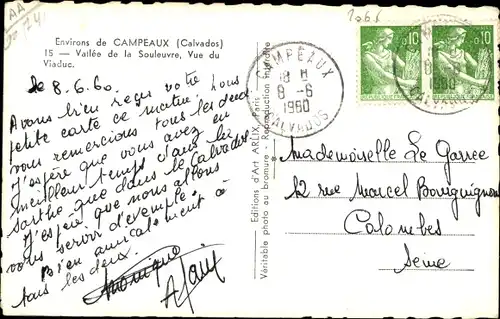 AA
1068
Environs de CAMPEAUX (Calvados)
15 — Vallée de la Souleuvre, Vue du
Viaduc.
le 8.6.60.
Avons bien reçu votre
petite carte ce matin, nous
vous remercions tous les deux.
J'espère que vous avez eu
meilleur temps dans la
sarthe que dans le Calvados.
J'espère que nous allons
vous servir d'exemple.
Bien amicalement à
tous les deux.
Monique
Alain
Editions d'Art ARLIX, Paris
Véritable photo au bromure - Reproduction interdite
CAMPEAUX
18 H
8 - 6
1960
CALVADOS
0,10
0,10
Mademoiselle Le Garrec
12 rue Marcel Bourguignon
Colombes
Seine